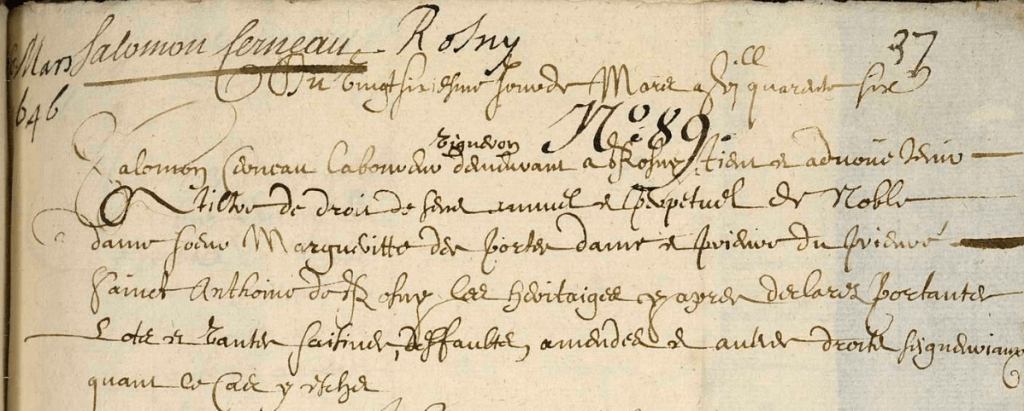 Mars Salomon Cerneau Rosny 37
1646
Du vingt sixiesme Jour de Mars a xvj quarente six
No 89
vigneron
Salomon Cerneau laboureur demeurant a Rosny tient et advoue tenir
A tiltre de droit de cens annuel et perpetuel de Noble
dame soeur Margueritte des portes dame et prieure du prieuré
Sainct Anthoine de Rosny les heritaiges cy apres declarez portantes
Lots et vantes saisines, deffaultes, amendes et autres droits seigneuriaux
quant le cas y eschet